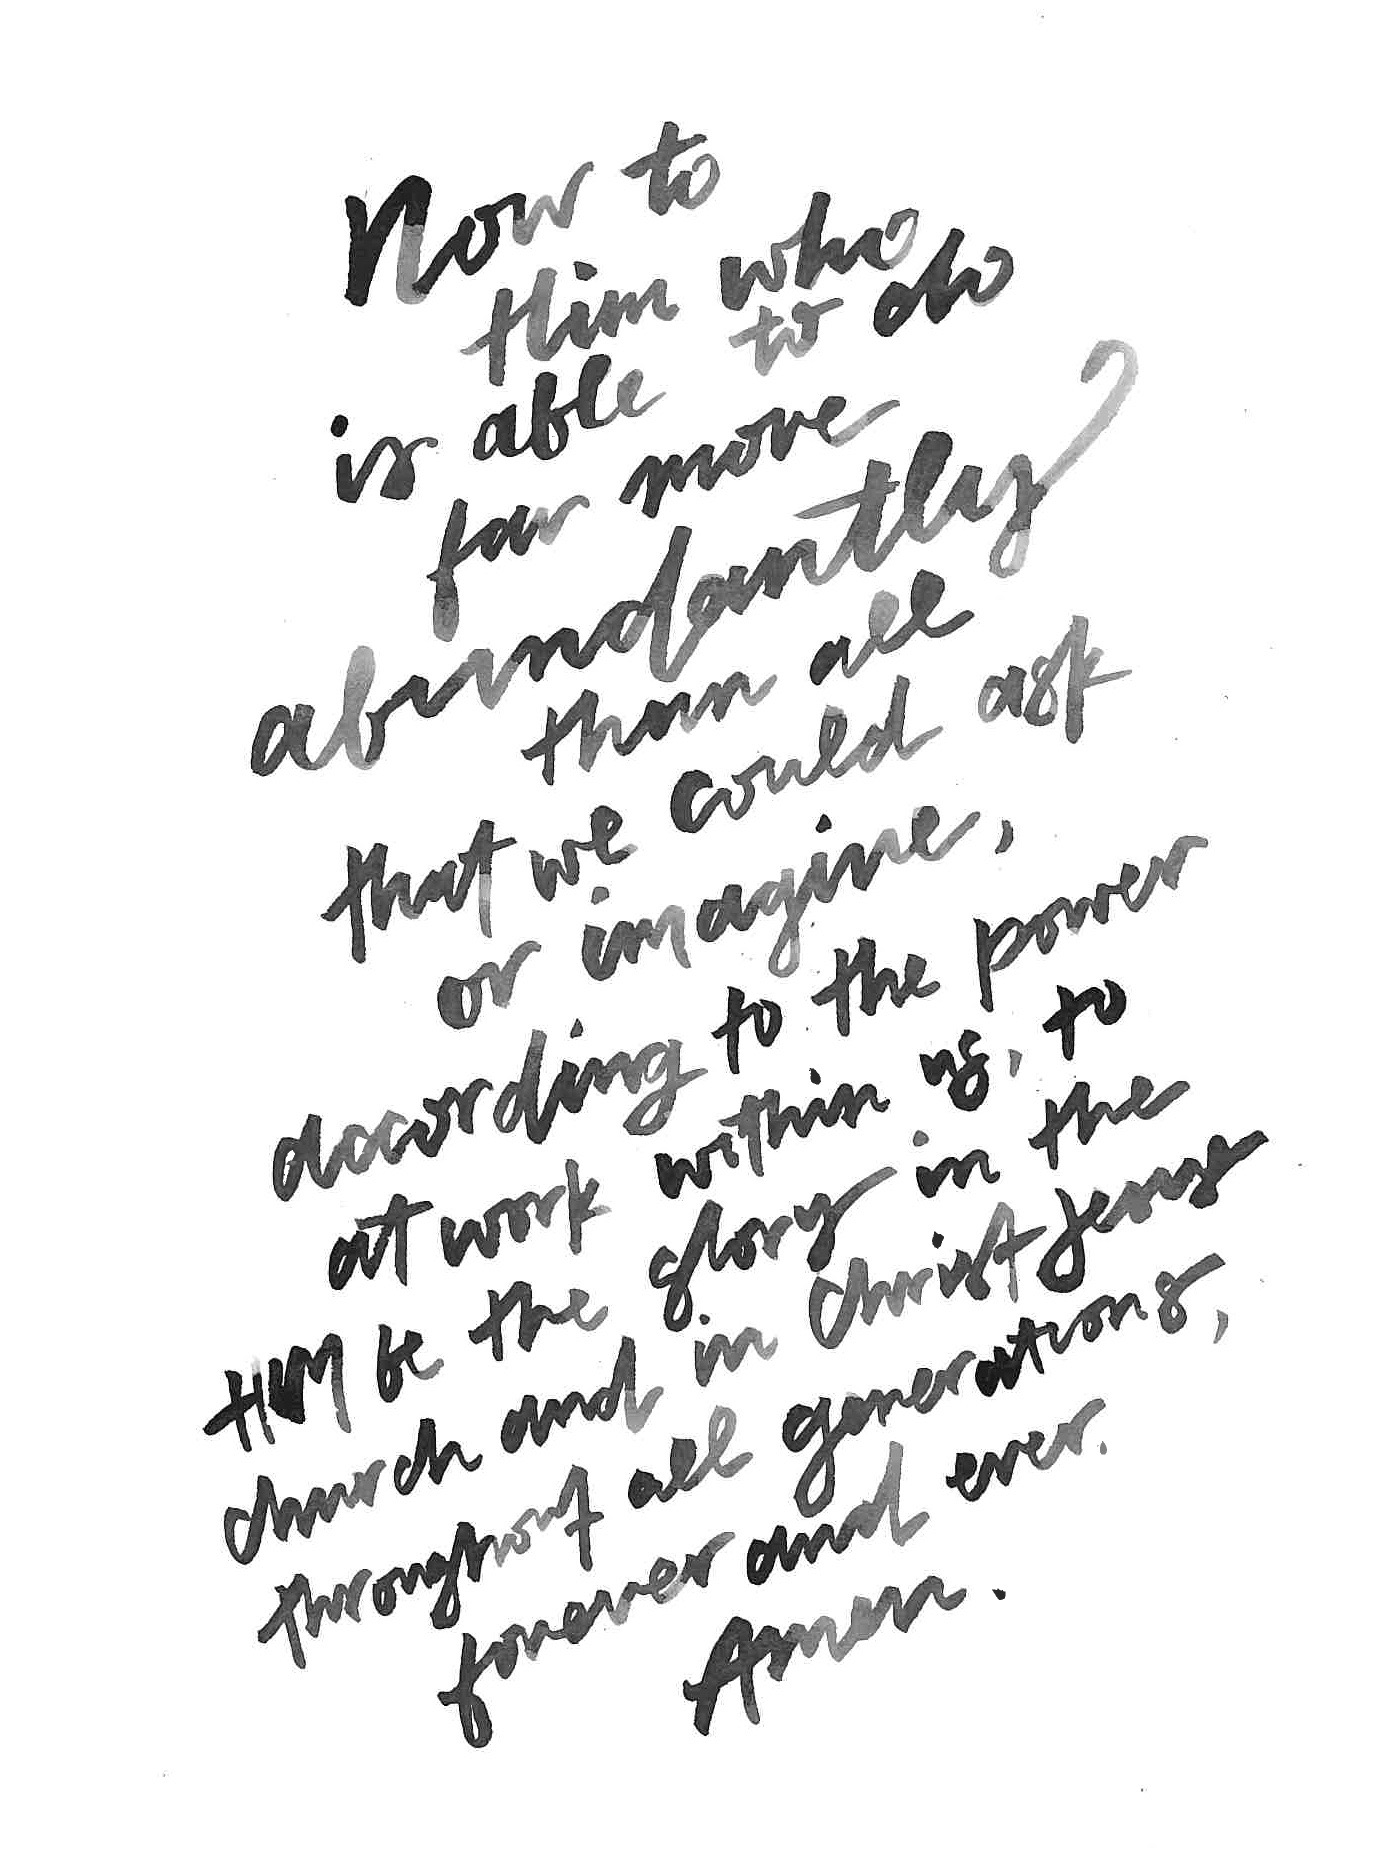 Now to
Him who
is able to do
far more
abundantly
than all
that we could ask
or imagine,
according to the power
at work within us, to
HIM be the glory in the
church and in Christ Jesus
throughout all generations,
forever and ever.
Amen.